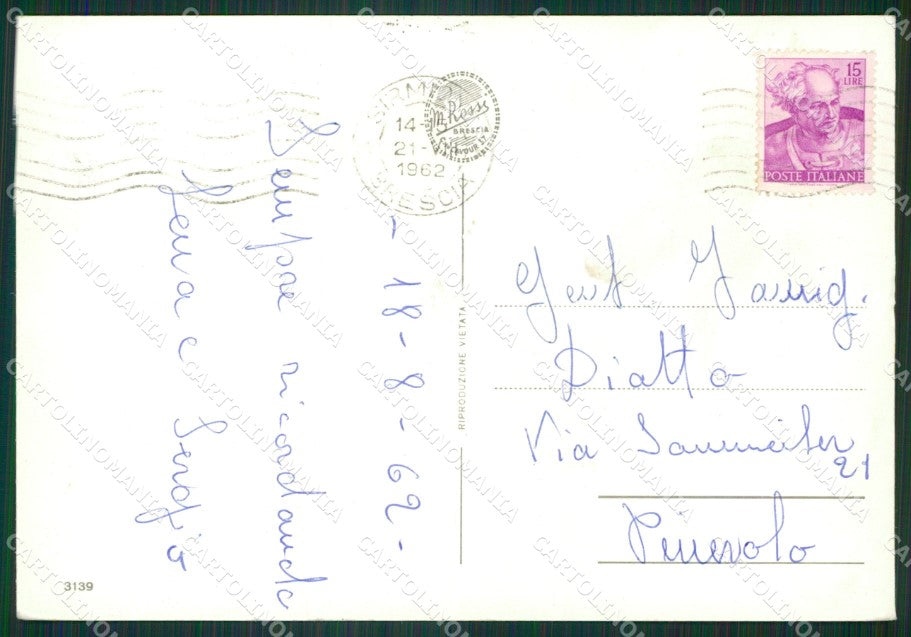 SIRMIONE
14-
21-8
1962
BRESCIA
M. Rossi
BRESCIA
C. CAVOUR 37
15
LIRE
POSTE ITALIANE
- 18-8-62-
Sempre ricordando
Lena e Sergio
Gent Famig.
Diatto
Via
21
RIPRODUZIONE VIETATA
3139
CARTOLINOMANIA